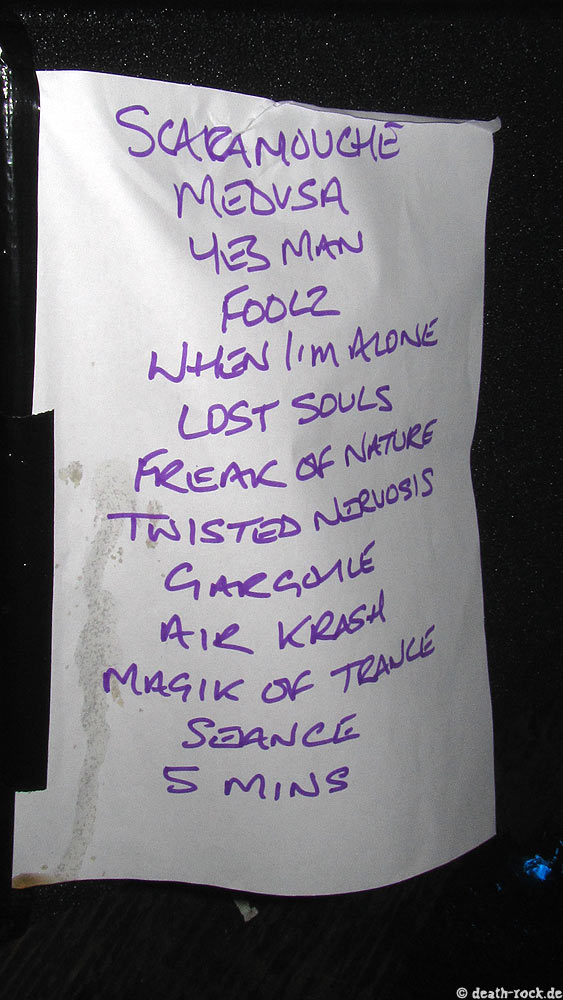 SCARAMOUCHE
MEDUSA
YES MAN
FOOLZ
WHEN I'M ALONE
LOST SOULS
FREAK OF NATURE
TWISTED NERVOSIS
GARGOYLE
AIR KRASH
MAGIK OF TRANCE
SEANCE
5 MINS
© death-rock.de